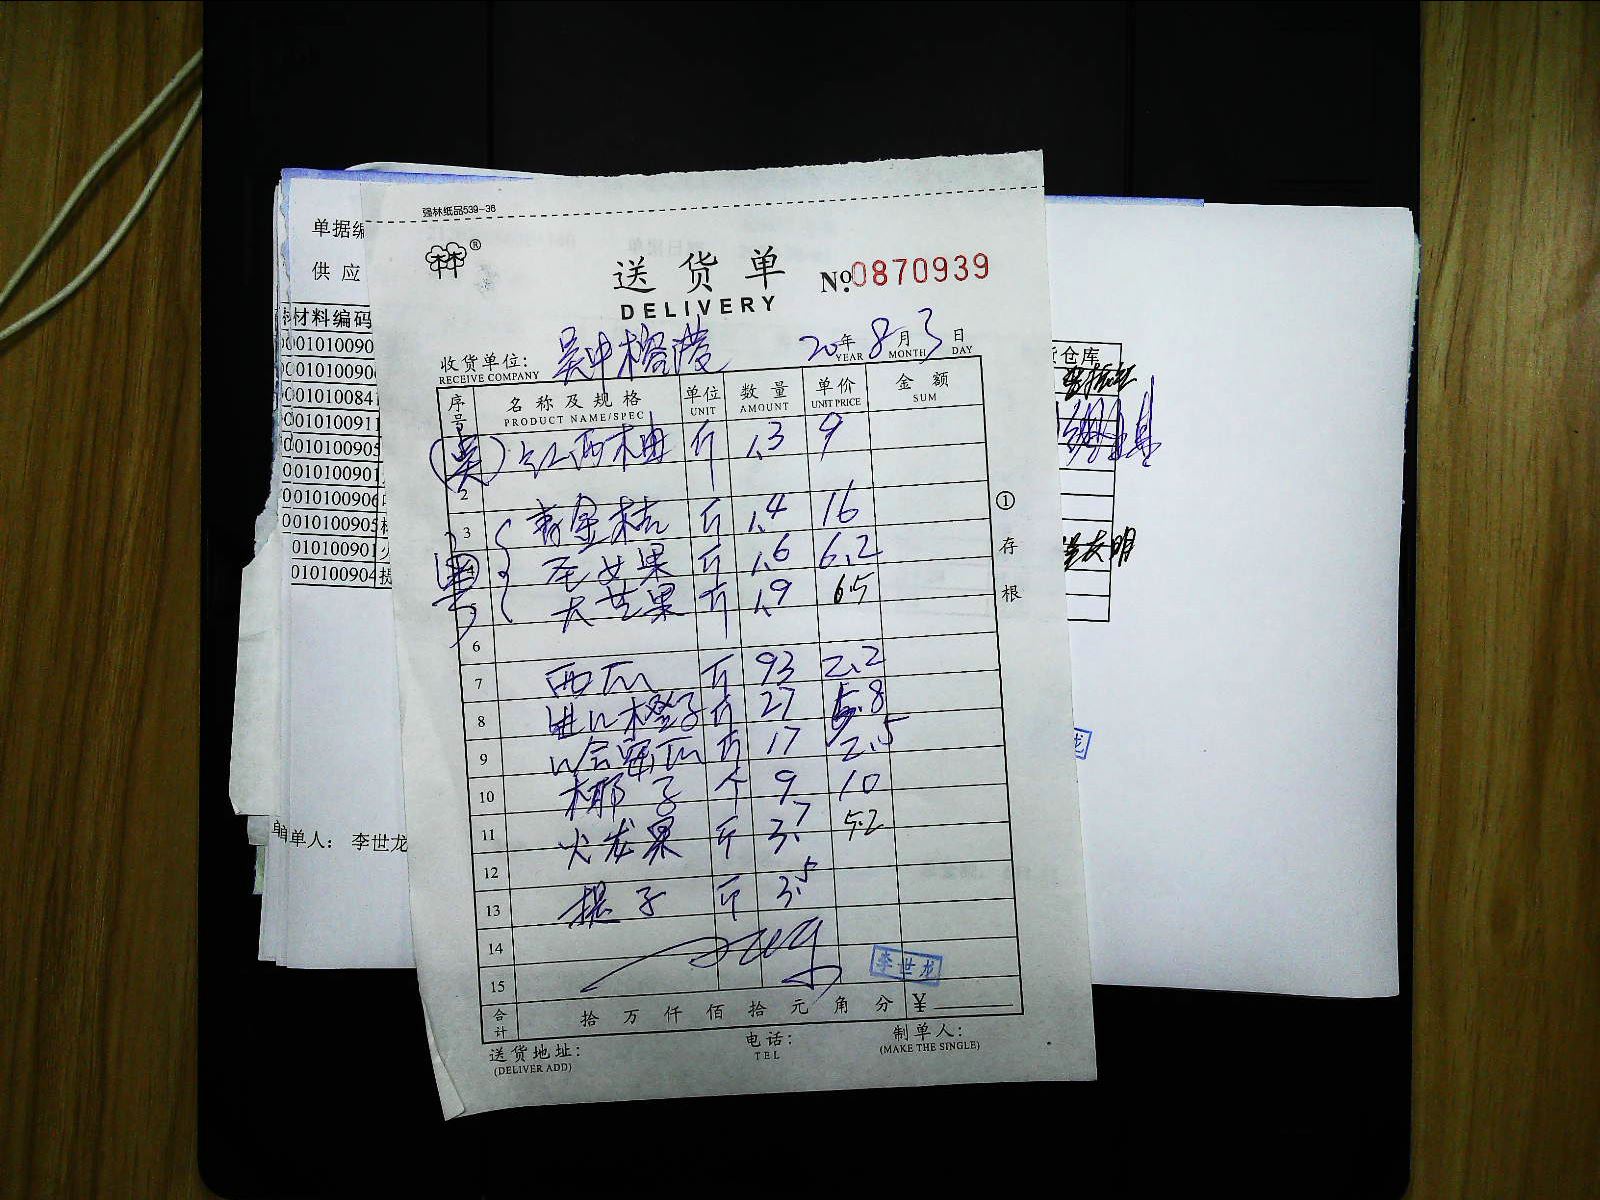 强林纸品539-36
林林®
送货单 №0870939
DELIVERY
收货单位: 吴中榕
RECEIVE COMPANY
20年8月3日
YEAR MONTH DAY
序号 名称及规格 单位 数量 单价 金额
PRODUCT NAME/SPEC UNIT AMOUNT UNIT PRICE SUM
江西柚 斤 1.3 9
2
3 青金桔 斤 1.4 16
4 圣女果 斤 1.6 6.2
5 大芒果 斤 1.9 6.5
6
7 西瓜 斤 93 2.2
8 进口橙子 斤 27 5.8
9 哈密瓜 斤 17 2.5
10 椰子 个 9 10
11 火龙果 斤 3.7 5.2
12
13 提子 斤 3.5
14
15
李世龙
合计 拾万仟佰拾元角分 ¥
送货地址: 电话: 制单人:
(DELIVER ADD) TEL (MAKE THE SINGLE)
①存根
单据编
供应
材料编码
001010090
0010100900
0010100841
0010100911
0010100905
0010100901
0010100906
0010100905
010100901 火
010100904 提
单人: 李世龙
仓库
龙